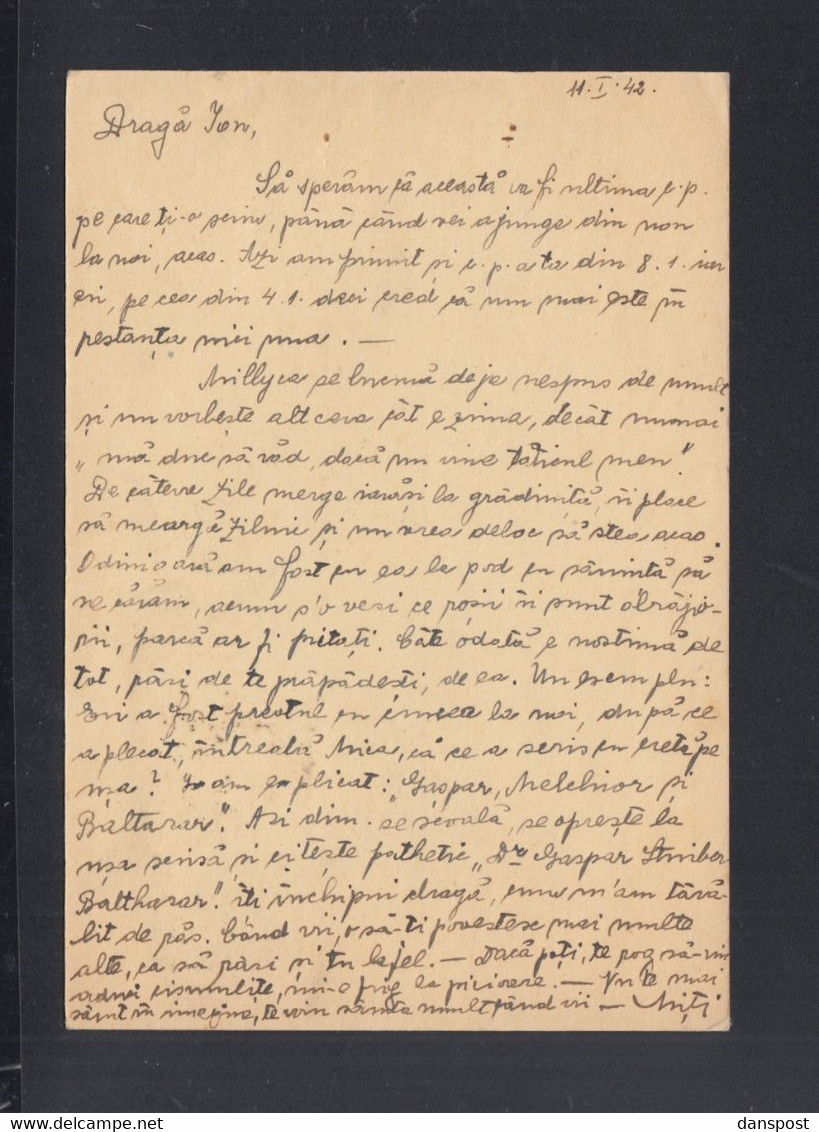 11. I. 42.
Dragă Ion,
Să sperăm că aceastǎ va fi ultima c.p.
pe care ți-o scriu, până când vei ajunge din nou
la noi, acas. Azi am primit și c.p. a ta din 8.1. iar
eri, pe cea din 4.1. deci cred că nu mai este în
restanța nici una. —
Millyca se bucură deja nespus de mult
și nu vorbește altceva cât e ziua, decât numai
„mă duc să văd, dacă nu vine tăticul meu".
De câteva zile merge iarăși la grădiniță, îi place
să meargă zilnic și nu vrea deloc să stea acas.
Odinioară am fost cu ea la pod cu săniuță să
ne cărăm, acum s'o vezi ce roșii îi sunt obrăjo-
rii, parcă ar fi pictați. Câte odată e nostimă de
tot, râzi de te prăpădești, de ea. Un exemplu:
Eri a fost preotul cu crucea la noi, după ce
a plecat, întreabă Mica, că ce a scris cu creta pe
ușa? I-am explicat: „Gaspar, Melchior și
Baltazar". Azi dim. se scoală, se oprește la
ușa scrisă și citește pathetic „Dr Gaspar Stuiber
Balthazar". îți închipui dragă, cum m'am tăvă-
lit de râs. Când vii, o să-ți povestesc mai multe
alte, ca să râzi și tu la fel. — Dacă poți, te rog să-mi
aduci cismulițe, mi-e frig la picioare. — Nu te mai
sărut în imagine, te voiu săruta mult când vii — Miți
danspost